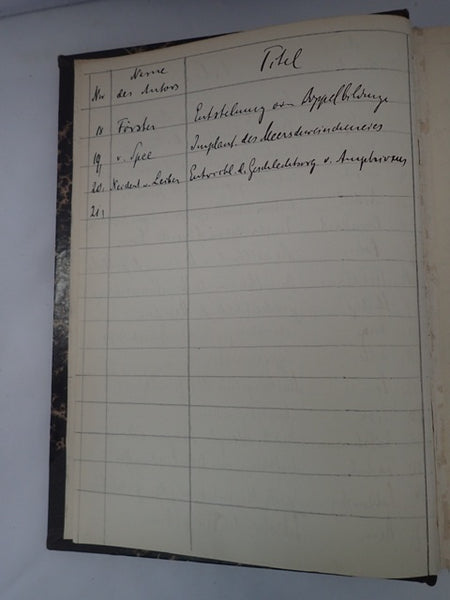 Nr Name des Autors Titel
18 Förster Entstehung von Doppelbildungen
19, v. Spee Implant. des Meerschweincheneies
20. Neidert u. Leiber Entwickl. d. Geschlechtsorg. v. Amphioxus
21,